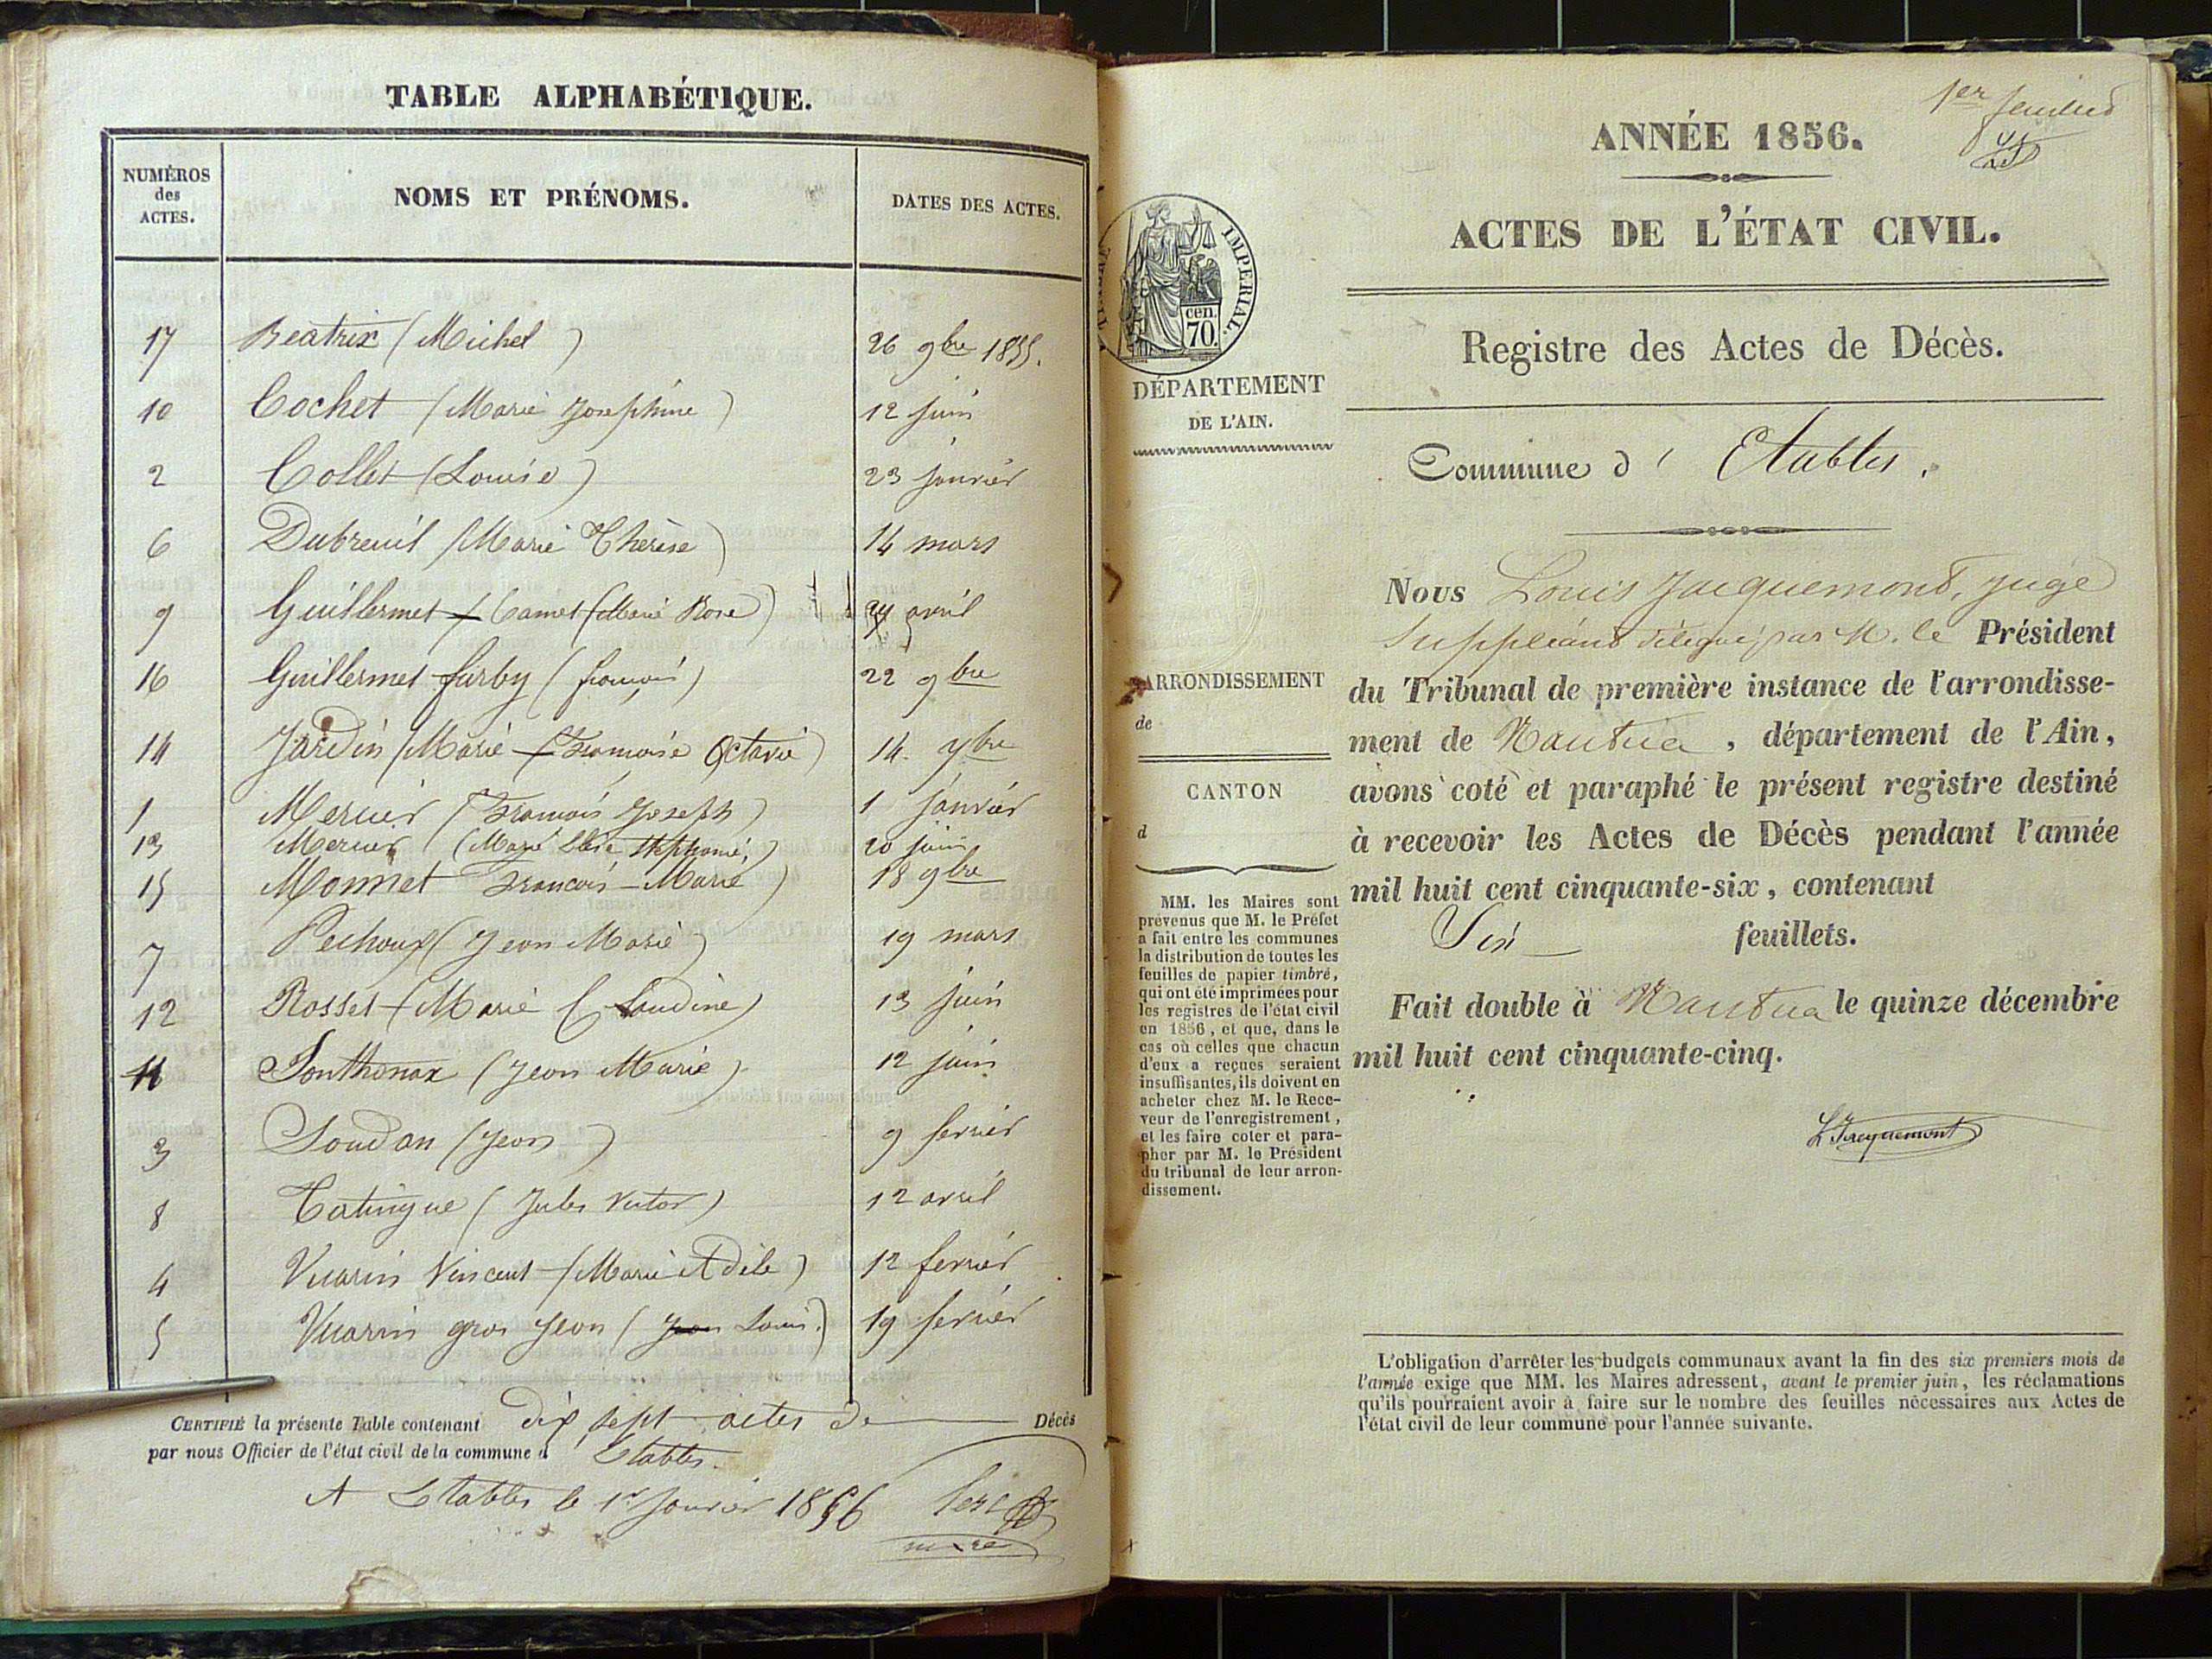 TABLE ALPHABÉTIQUE.
NUMÉROS des ACTES.
NOMS ET PRÉNOMS.
DATES DES ACTES.
17 Beatrix (Michel) 26 9bre 1855.
10 Cochet (Marie Josephine) 12 juin
2 Collet (Louise) 23 janvier
6 Dubreuil (Marie Thérèse) 14 mars
9 Guillermet Camet (Marie Rose) avril
16 Guillermet furby (françois) 22 9bre
14 Jardin (Marie Françoise Octavie) 14. 7bre
1 Mercier (François Joseph) 1 janvier
13 Mercier (Marie Stephanie,) 20 juin
15 Monnet François-Marie) 18 9bre
7 Pechoux (Jean Marie) 19 mars
12 Rosset (Marie Claudine) 13 juin
11 Sonthonax (Jean Marie) 12 juin
3 Soudan (Jean) 9 fevrier
8 Catingue (Jules Victor) 12 avril
4 Vuarin Vincent (Marie Adèle) 12 fevrier
5 Vuarin gros Jean (Jean Louis.) 19 fevrier
CERTIFIÉ la présente Table contenant dix sept actes de Décès
par nous Officier de l'état civil de la commune d Etables.
A Etables le 1er janvier 1856
maire
1er feuillet
ANNÉE 1856.
ACTES DE L'ÉTAT CIVIL.
TIMBRE IMPÉRIAL.
70. cen.
DÉPARTEMENT
DE L'AIN.
Registre des Actes de Décès.
Commune d' Etables.
Nous Louis Jacquemont, Juge
Suppléant délégué par M. le Président
du Tribunal de première instance de l'arrondisse-
ment de Nantua, département de l'Ain,
avons coté et paraphé le présent registre destiné
à recevoir les Actes de Décès pendant l'année
mil huit cent cinquante-six, contenant
Six feuillets.
Fait double à Nantua le quinze décembre
mil huit cent cinquante-cinq.
L Jacquemont
ARRONDISSEMENT
de
CANTON
d
MM. les Maires sont
prévenus que M. le Préfet
a fait entre les communes
la distribution de toutes les
feuilles de papier timbré,
qui ont été imprimées pour
les registres de l'état civil
en 1856, et que, dans le
cas où celles que chacun
d'eux a reçues seraient
insuffisantes, ils doivent en
acheter chez M. le Rece-
veur de l'enregistrement,
et les faire coter et para-
pher par M. le Président
du tribunal de leur arron-
dissement.
L'obligation d'arrêter les budgets communaux avant la fin des six premiers mois de
l'année exige que MM. les Maires adressent, avant le premier juin, les réclamations
qu'ils pourraient avoir à faire sur le nombre des feuilles nécessaires aux Actes de
l'état civil de leur commune pour l'année suivante.